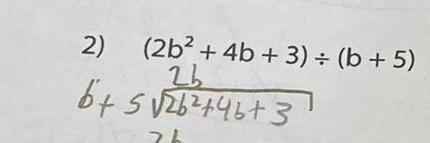 2) (2b² + 4b + 3) ÷ (b + 5)
2b
b + 5 √2b²+4b+3
2b